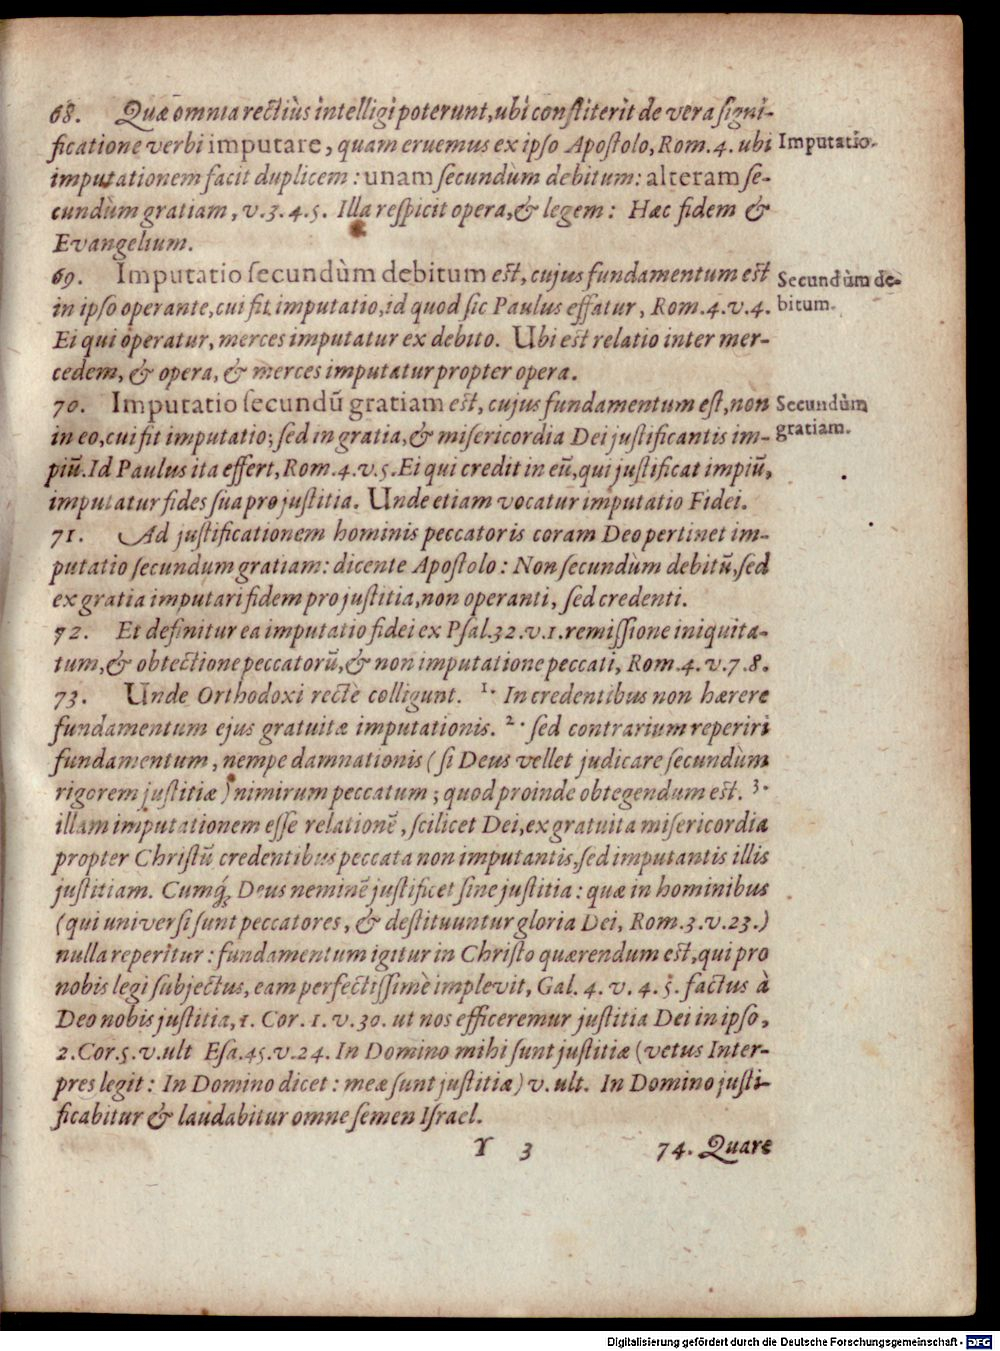 68. Quæ omnia rectiùs intelligi poterunt, ubi constiterit de vera signi-
ficatione verbi imputare, quam eruemus ex ipso Apostolo, Rom. 4. ubi
Imputatio.
imputationem facit duplicem: unam secundùm debitum: alteram se-
cundùm gratiam, v. 3. 4. 5. Illa respicit opera, & legem: Hæc fidem &
Evangelium.
69. Imputatio secundùm debitum est, cujus fundamentum est
Secundùm de-
in ipso operante, cui fit imputatio, id quod sic Paulus effatur, Rom. 4. v. 4.
bitum.
Ei qui operatur, merces imputatur ex debito. Ubi est relatio inter mer-
cedem, & opera, & merces imputatur propter opera.
70. Imputatio secundū gratiam est, cujus fundamentum est, non
Secundùm
in eo, cui fit imputatio; sed in gratia, & misericordia Dei justificantis im-
gratiam.
piū. Id Paulus ita effert, Rom. 4. v. 5. Ei qui credit in eū, qui justificat impiū,
imputatur fides sua pro justitia. Unde etiam vocatur imputatio Fidei.
71. Ad justificationem hominis peccatoris coram Deo pertinet im-
putatio secundum gratiam: dicente Apostolo: Non secundùm debitū, sed
ex gratia imputari fidem pro justitia, non operanti, sed credenti.
72. Et definitur ea imputatio fidei ex Psal. 32. v. 1. remissione iniquita-
tum, & obtectione peccatorū, & non imputatione peccati, Rom. 4. v. 7. 8.
73. Unde Orthodoxi rectè colligunt. 1. In credentibus non hærere
fundamentum ejus gratuitæ imputationis. 2. sed contrarium reperiri
fundamentum, nempe damnationis (si Deus vellet judicare secundùm
rigorem justitiæ) nimirum peccatum; quod proinde obtegendum est. 3.
illam imputationem esse relationē, scilicet Dei, ex gratuita misericordia
propter Christū credentibus peccata non imputantis, sed imputantis illis
justitiam. Cumq́; Deus neminē justificet sine justitia: quæ in hominibus
(qui universi sunt peccatores, & destituuntur gloria Dei, Rom. 3. v. 23.)
nulla reperitur: fundamentum igitur in Christo quærendum est, qui pro
nobis legi subjectus, eam perfectissimè implevit, Gal. 4. v. 4. 5. factus à
Deo nobis justitia, 1. Cor. 1. v. 30. ut nos efficeremur justitia Dei in ipso,
2. Cor. 5. v. ult Esa. 45. v. 24. In Domino mihi sunt justitiæ (vetus Inter-
pres legit: In Domino dicet: meæ sunt justitiæ) v. ult. In Domino justi-
ficabitur & laudabitur omne semen Israel.
Y 3 74. Quare
Digitalisierung gefördert durch die Deutsche Forschungsgemeinschaft - DFG